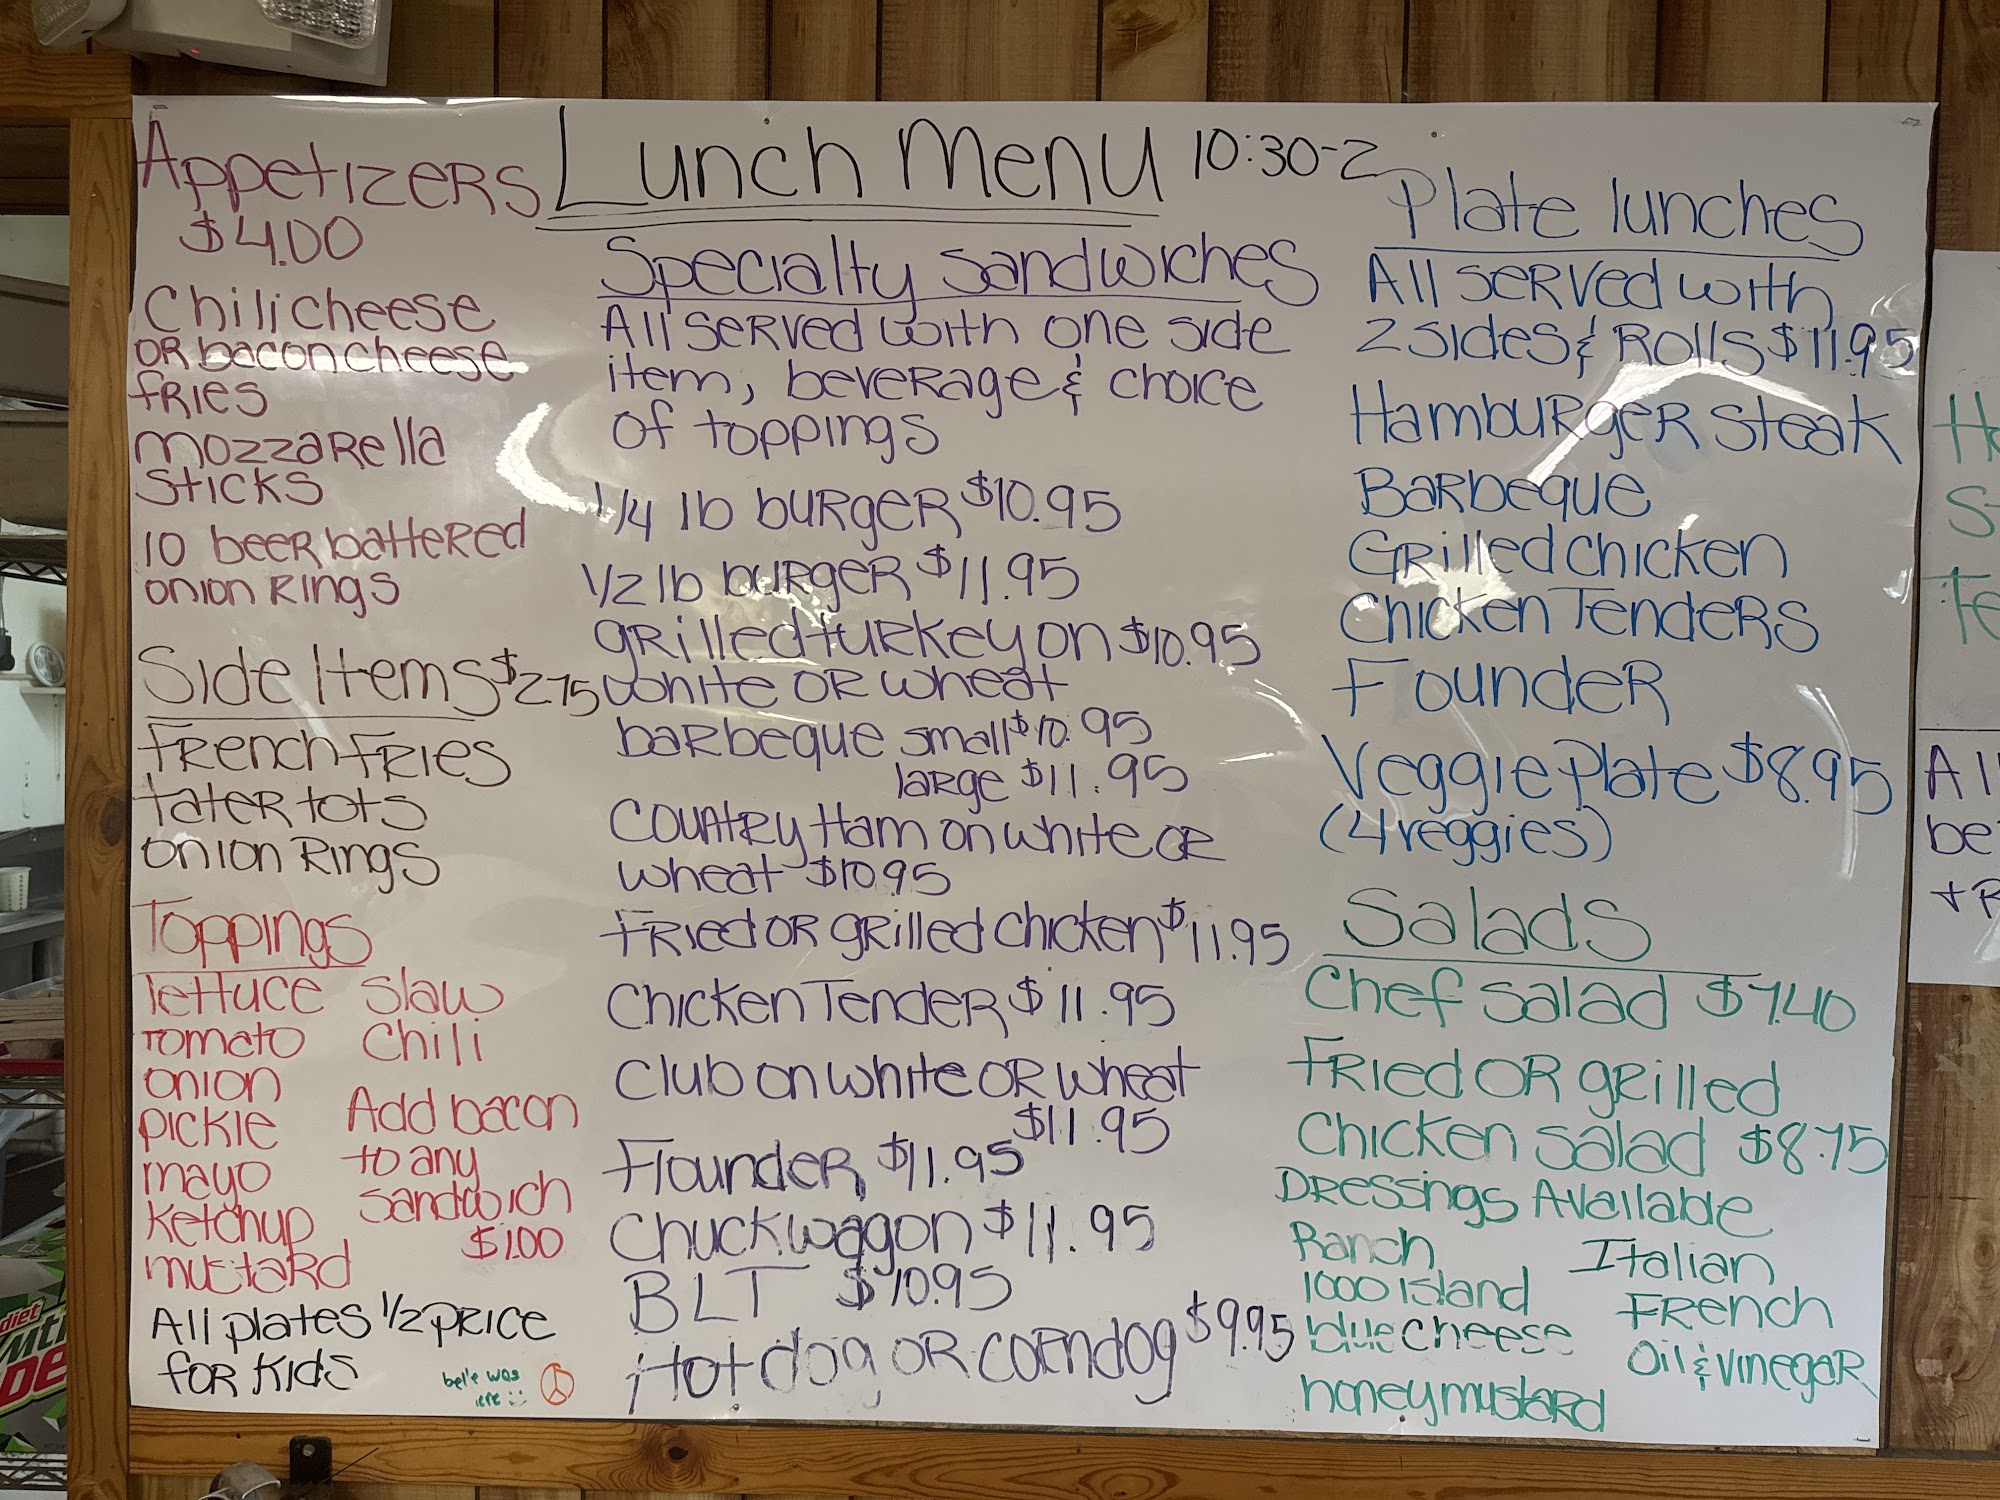 Lunch Menu 10:30-2
Appetizers
$4.00
Chili cheese
or bacon cheese
fries
mozzarella
sticks
10 beer battered
onion rings
Side Items $2.75
French Fries
tater tots
onion rings
Toppings
lettuce slaw
tomato chili
onion
pickle
mayo
ketchup
mustard
Add bacon
to any
sandwich
$1.00
All plates 1/2 price
for kids
was
Specialty Sandwiches
All served with one side
item, beverage & choice
of toppings
1/4 lb burger $10.95
1/2 lb burger $11.95
grilled turkey on $10.95
white or wheat
barbeque small $10.95
large $11.95
Country Ham on white or
wheat $10.95
Fried or grilled chicken $11.95
Chicken Tender $11.95
Club on white or wheat
$11.95
Flounder $11.95
Chuckwagon $11.95
BLT $10.95
Hot dog or corndog $9.95
Plate lunches
All served with
2 sides & Rolls $11.95
Hamburger Steak
Barbeque
Grilled chicken
Chicken Tenders
Flounder
Veggie Plate $8.95
(4 veggies)
Salads
Chef salad $7.40
Fried or grilled
chicken salad $8.75
Dressings Available
Ranch
1000 island
blue cheese
honey mustard
Italian
French
Oil & vinegar
diet